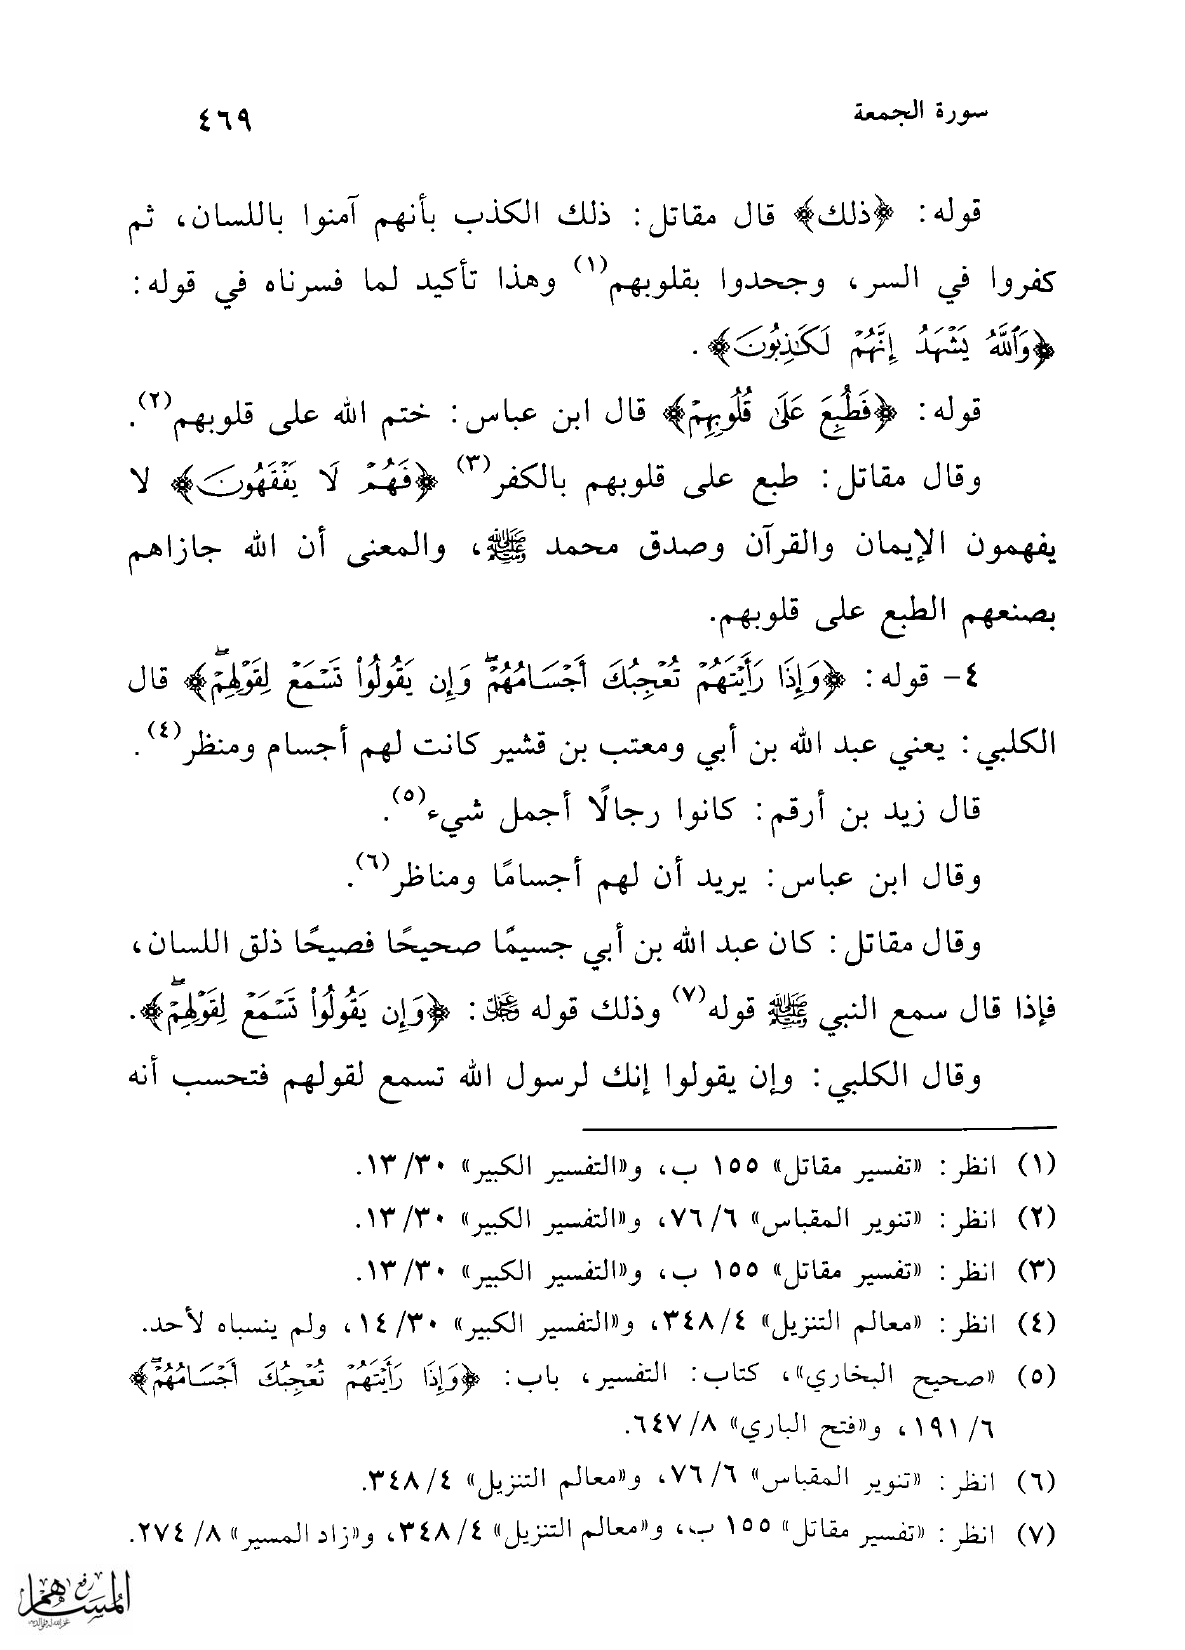 سورة الجمعة ٤٦٩
قوله: ﴿ذلك﴾ قال مقاتل: ذلك الكذب بأنهم آمنوا باللسان، ثم
كفروا في السر، وجحدوا بقلوبهم(١) وهذا تأكيد لما فسرناه في قوله:
﴿وَٱللَّهُ يَشۡهَدُ إِنَّهُمۡ لَكَٰذِبُونَ﴾.
قوله: ﴿فَطُبِعَ عَلَىٰ قُلُوبِهِمۡ﴾ قال ابن عباس: ختم الله على قلوبهم(٢).
وقال مقاتل: طبع على قلوبهم بالكفر(٣) ﴿فَهُمۡ لَا يَفۡقَهُونَ﴾ لا
يفهمون الإيمان والقرآن وصدق محمد ﷺ، والمعنى أن الله جازاهم
بصنعهم الطبع على قلوبهم.
٤- قوله: ﴿وَإِذَا رَأَيۡتَهُمۡ تُعۡجِبُكَ أَجۡسَامُهُمۡۖ وَإِن يَقُولُواْ تَسۡمَعۡ لِقَوۡلِهِمۡۖ﴾ قال
الكلبي: يعني عبد الله بن أبي ومعتب بن قشير كانت لهم أجسام ومنظر(٤).
قال زيد بن أرقم: كانوا رجالًا أجمل شيء(٥).
وقال ابن عباس: يريد أن لهم أجسامًا ومناظر(٦).
وقال مقاتل: كان عبد الله بن أبي جسيمًا صحيحًا فصيحًا ذلق اللسان،
فإذا قال سمع النبي ﷺ قوله(٧) وذلك قوله عز وجل: ﴿وَإِن يَقُولُواْ تَسۡمَعۡ لِقَوۡلِهِمۡۖ﴾.
وقال الكلبي: وإن يقولوا إنك لرسول الله تسمع لقولهم فتحسب أنه
(١) انظر: «تفسير مقاتل» ١٥٥ ب، و«التفسير الكبير» ٣٠/ ١٣.
(٢) انظر: «تنوير المقباس» ٦/ ٧٦، و«التفسير الكبير» ٣٠/ ١٣.
(٣) انظر: «تفسير مقاتل» ١٥٥ ب، و«التفسير الكبير» ٣٠/ ١٣.
(٤) انظر: «معالم التنزيل» ٤/ ٣٤٨، و«التفسير الكبير» ٣٠/ ١٤، ولم ينسباه لأحد.
(٥) «صحيح البخاري»، كتاب: التفسير، باب: ﴿وَإِذَا رَأَيۡتَهُمۡ تُعۡجِبُكَ أَجۡسَامُهُمۡۖ﴾
٦/ ١٩١، و«فتح الباري» ٨/ ٦٤٧.
(٦) انظر: «تنوير المقباس» ٦/ ٧٦، و«معالم التنزيل» ٤/ ٣٤٨.
(٧) انظر: «تفسير مقاتل» ١٥٥ ب، و«معالم التنزيل» ٤/ ٣٤٨، و«زاد المسير» ٨/ ٢٧٤.